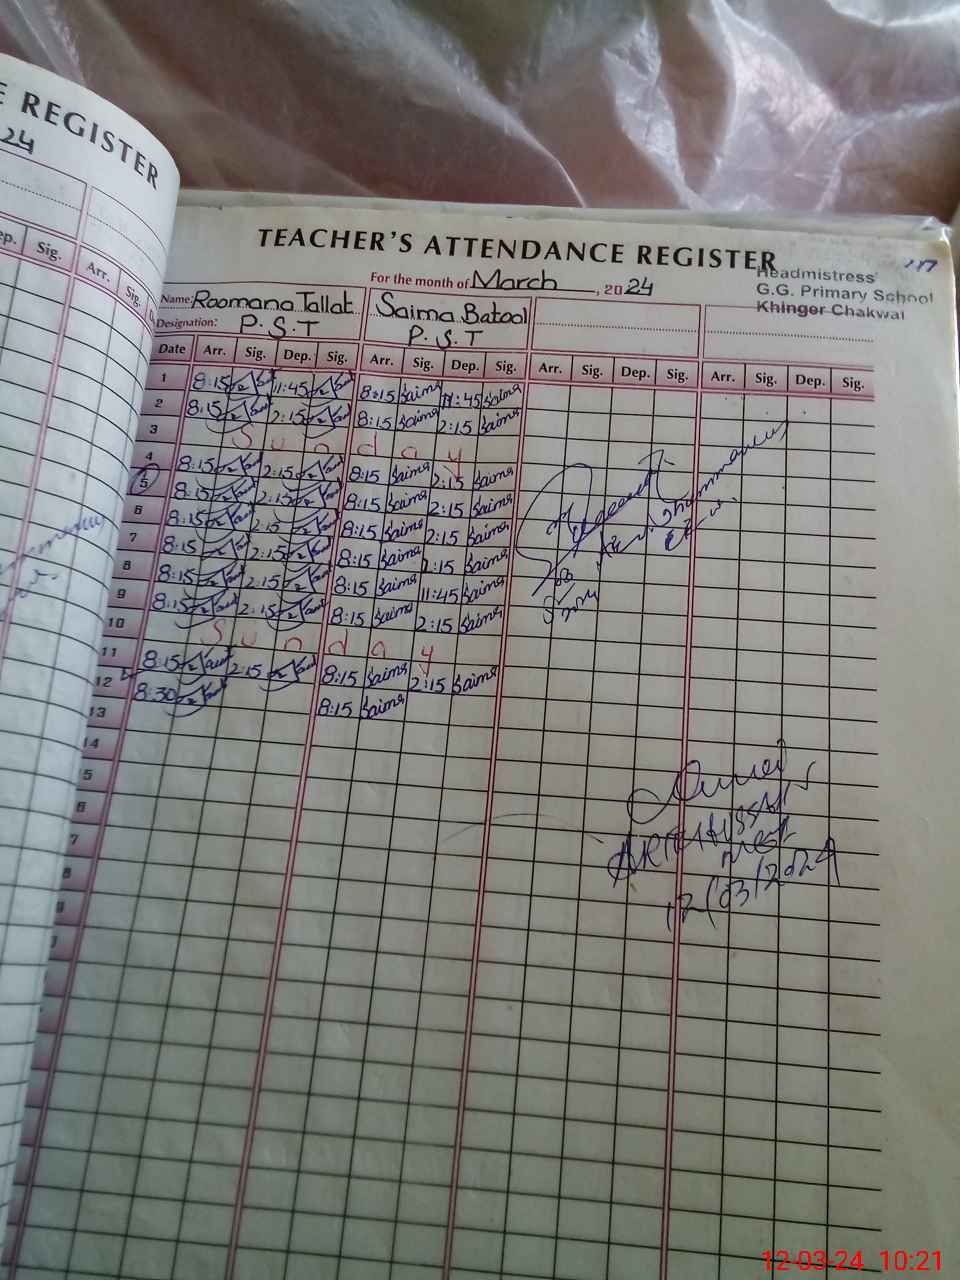 E REGISTER
24
ep. Sig. Arr. Sig.
TEACHER'S ATTENDANCE REGISTER
117
For the month of March, 2024
Headmistress
G.G. Primary School
Khinger Chakwal
Name: Roomana Tallat Saima Batool
Designation: P.S.T P.S.T
Date Arr. Sig. Dep. Sig. Arr. Sig. Dep. Sig. Arr. Sig. Dep. Sig. Arr. Sig. Dep. Sig.
1 8:15 11:45 8:15 Saima 11:45 Saima
2 8:15 2:15 8:15 Saima 2:15 Saima
3 Sunday
4 8:15 2:15 8:15 Saima 2:15 Saima
5 8:15 2:15 8:15 Saima 2:15 Saima
6 8:15 2:15 8:15 Saima 2:15 Saima
7 8:15 2:15 8:15 Saima 2:15 Saima
8 8:15 2:15 8:15 Saima 11:45 Saima
9 8:15 2:15 8:15 Saima 2:15 Saima
10 Sunday
11 8:15 2:15 8:15 Saima 2:15 Saima
12 8:30 8:15 Saima
13
14
5
6
7
8
9
12/03/2024
12-03-24 10:21